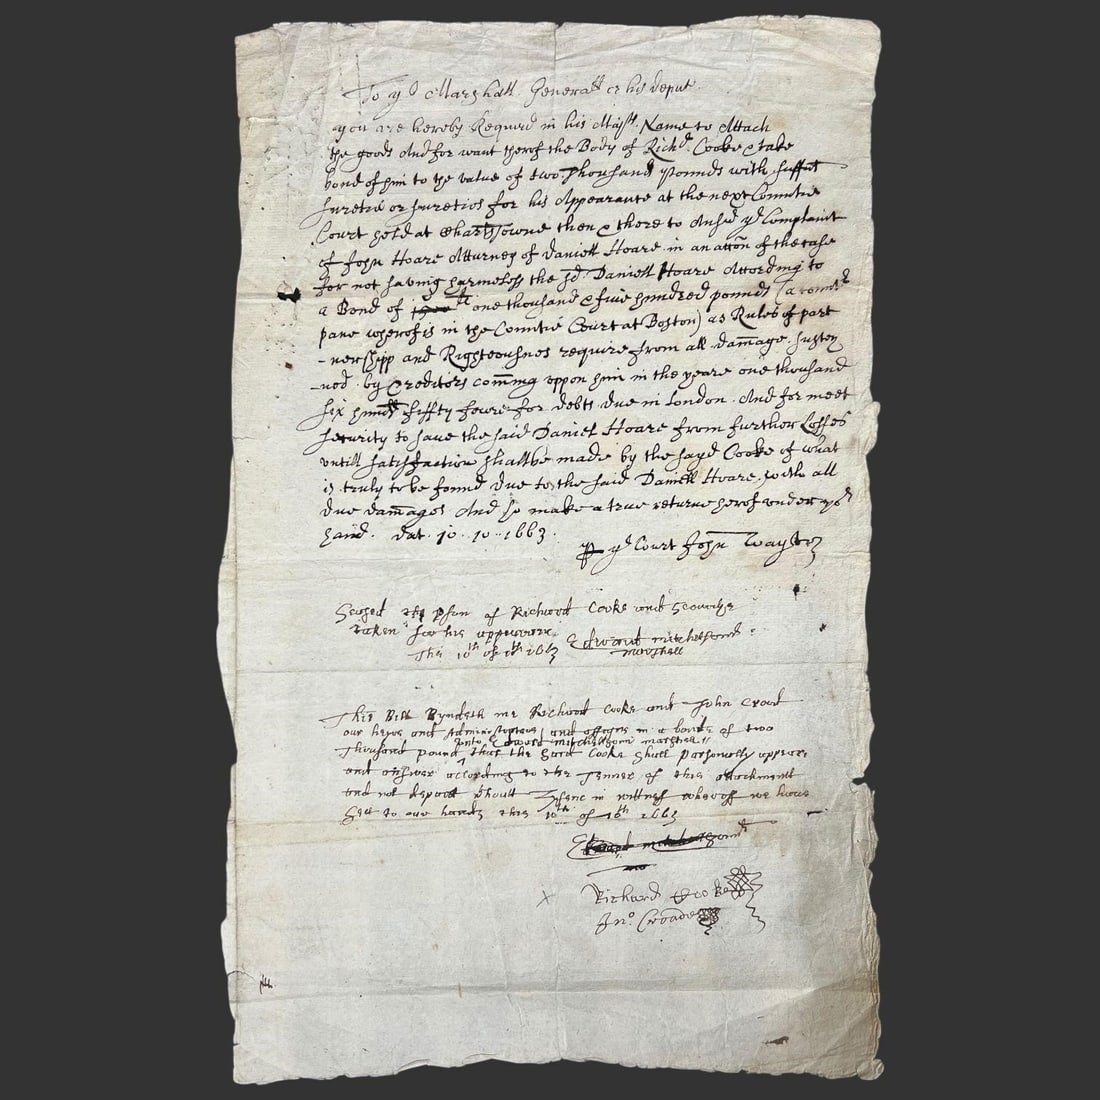 To ye Marshall Generall or his deput
you are hereby Required in his Majsts Name to Attach
the goods And for want therof the Body of Richd Cooke & take
bond of him to the value of two thousand pounds with suffict
suretie or sureties for his Appearance at the next Countie
Court held at Charlstowne then & there to Answr ye Complaint
of John Hoare Atturney of Daniell Hoare in an action of the case
for not saving harmeless the sd Daniell Hoare According to
a Bond of one thousand & five hundred pounds (a counter
pane wherof is in the Countie Court at Boston) as Rules of part
-nershipp and Righteousnes require from all damage sustey
-ned by Creditors coming uppon him in the yeare one thousand
six hundd fiffty foure for debts due in London And for meet
security to save the said Daniel Hoare from further Losses
untill satisfaction shalbe made by the sayd Cooke of what
is truly to be found due to the said Daniell Hoare, with all
due damages And so make a true returne herof under yor
hand. dat. 10..10..1663.
ye Court John Wayte
Seased the pson of Richard Cooke and securitye
taken for his appearanc
This 10th of 1663 Edward mitchelsond
marshall
This Bill Byndeth me Richard Cooke and John Croad
our heyrs and Administrators and assigns in a bonde of two
Thousand pound unto Edward mitchelsonn marshall
that the said Cooke shall parsonally appeare
and answer according to the Tenner of this attachment
and not depart without lysenc in wittness wherof we have
sett to our hands this 10th of 10th 1663
Edward mitchelsonn
Richard Cooke
Jno. Croade